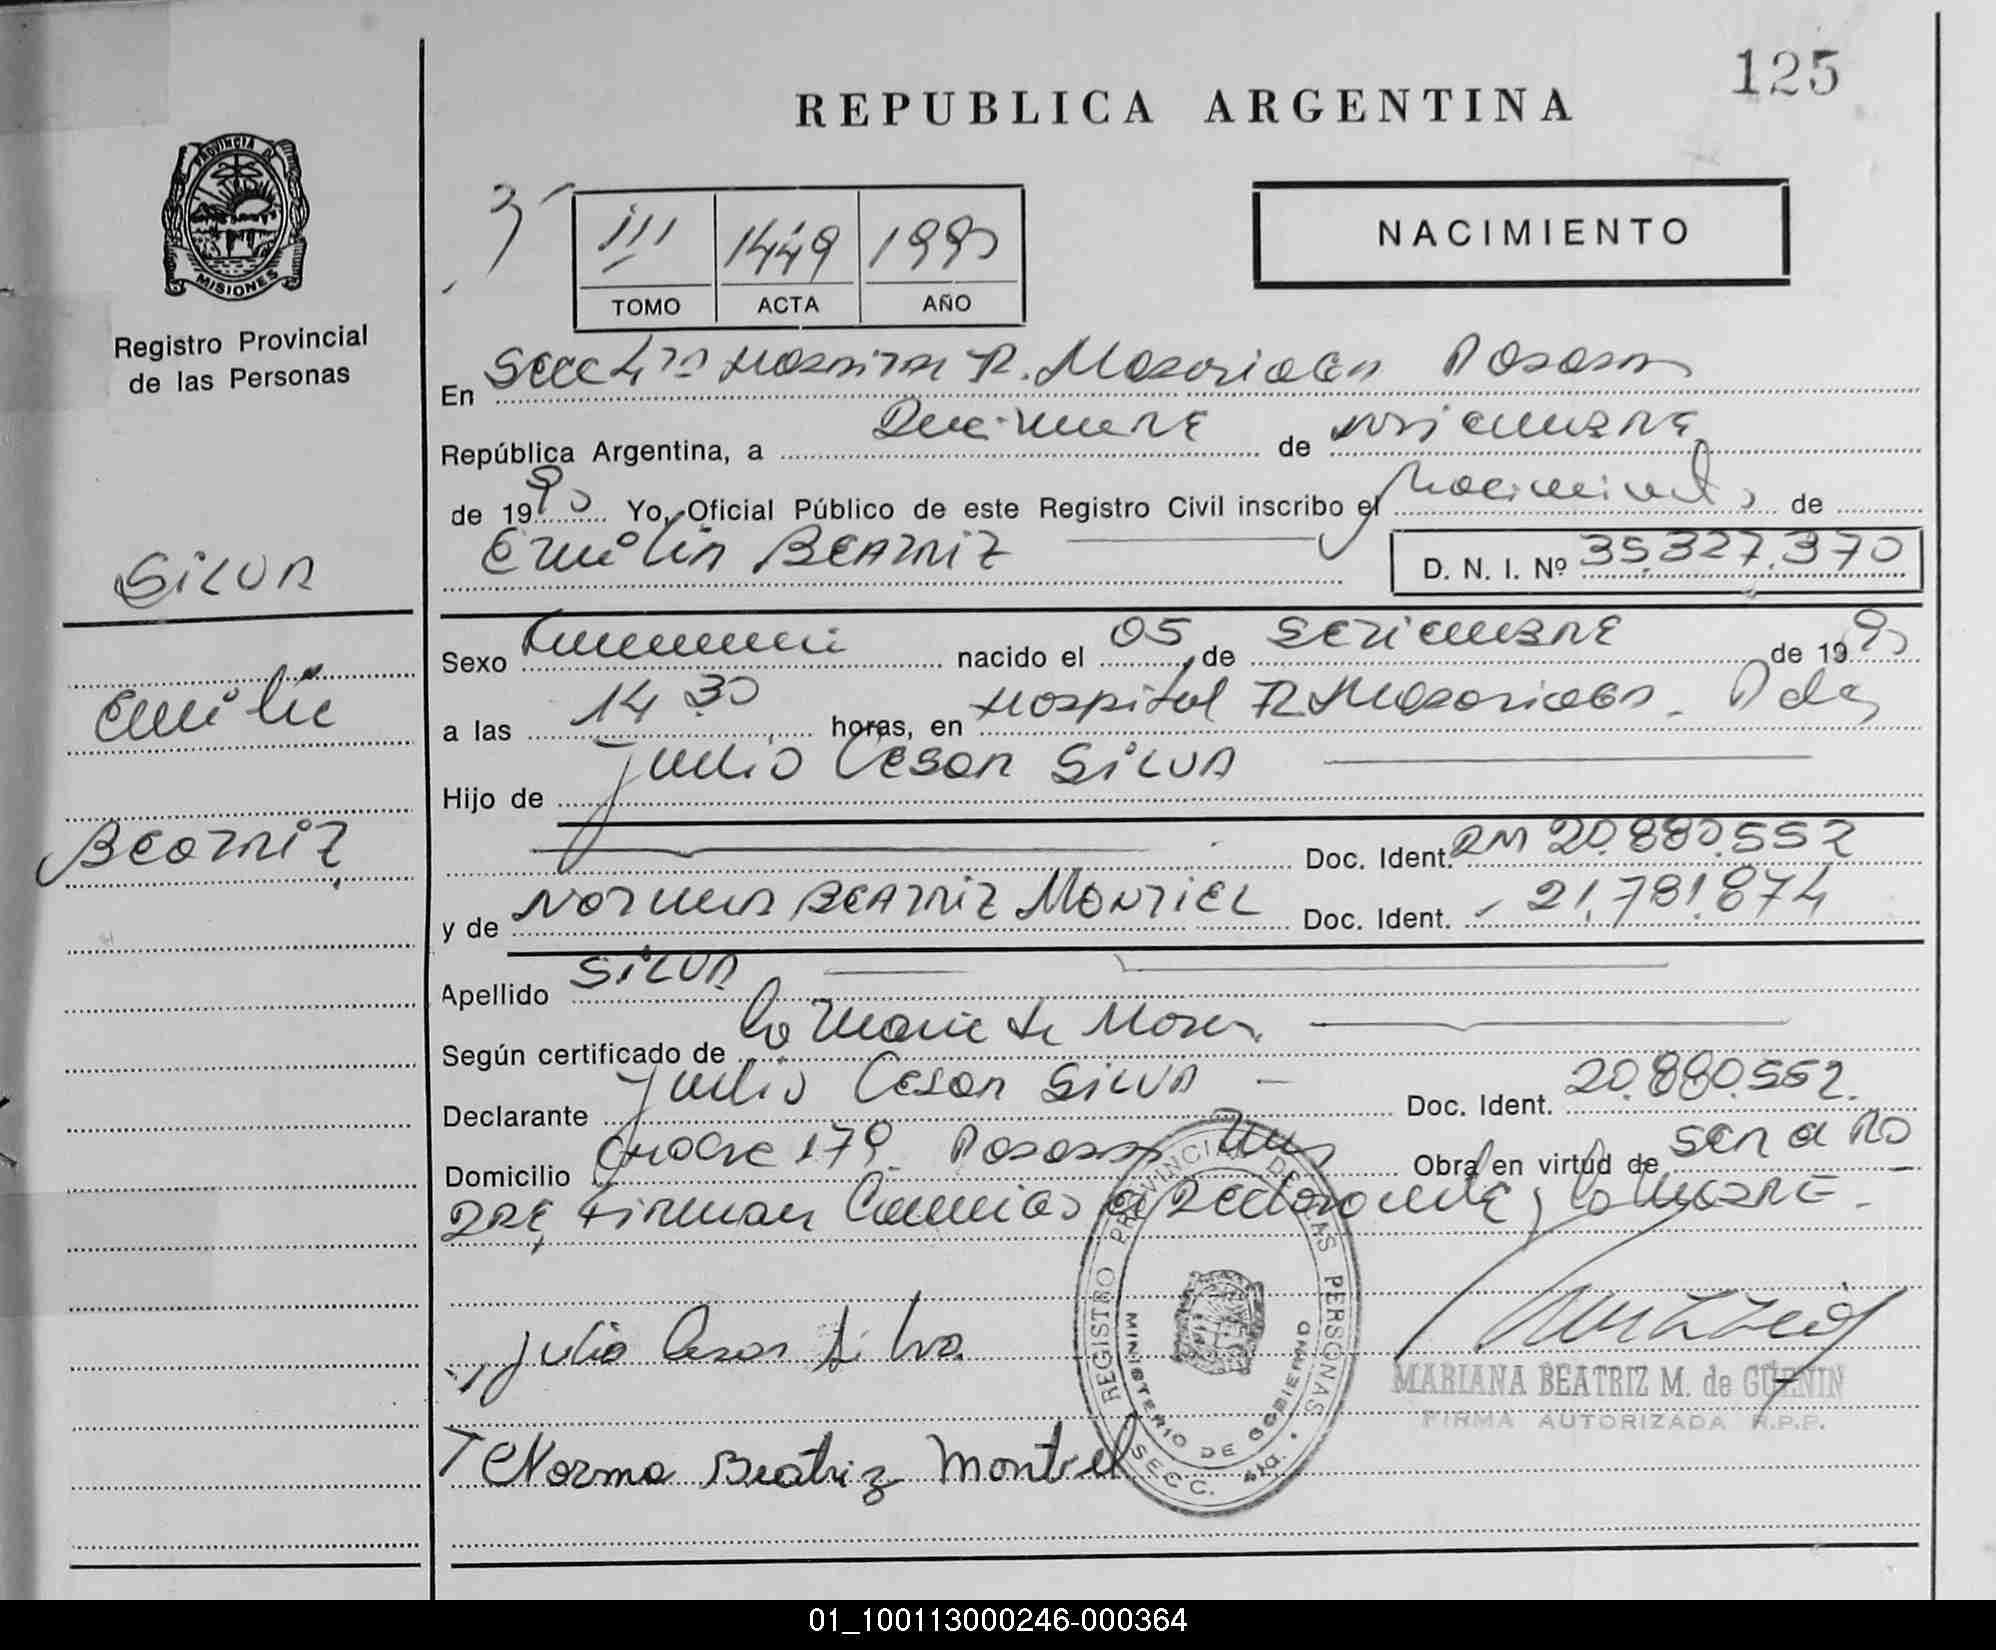 125
REPUBLICA ARGENTINA
PROVINCIA DE
MISIONES
Registro Provincial
de las Personas
NACIMIENTO
III 1449 1990
TOMO ACTA AÑO
En Secc 4ta Hospital R. Madariaga Posadas
República Argentina, a de
de 1990 Yo, Oficial Público de este Registro Civil inscribo el Nacimiento de
Emilia BEATRIZ
D. N. I. Nº 35.327.370
SILVA
Emilia
Beatriz
Sexo Femenino nacido el 05 de SETIEMBRE de 1990
a las 14 30 horas, en Hospital R Madariaga. Pdas
Hijo de Julio Cesar SILVA
Doc. Ident. DM 20.880.552
y de NORMA BEATRIZ MONTIEL Doc. Ident. 21.781.874
Apellido SILVA
Según certificado de
Declarante Julio Cesar SILVA Doc. Ident. 20.880.552.
Domicilio 179 Posadas Mnes Obra en virtud de ser el PA
DRE, Firman Conmigo el Declarante y la MADRE.
Julio Cesar Silva
Norma Beatriz Montiel
REGISTRO PROVINCIAL DE LAS PERSONAS
MINISTERIO DE GOBIERNO
SECC. 4ta.
MARIANA BEATRIZ M. de GUENIN
FIRMA AUTORIZADA R.P.P.
01_100113000246-000364